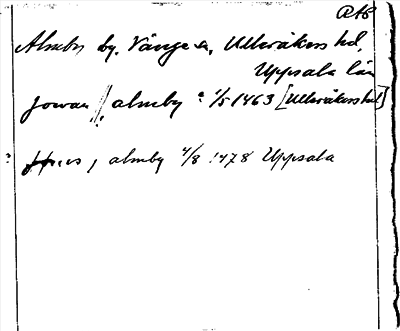 Almby by. Vänge sn, Ulleråkers hd,
Uppsala län
Jowan // almby 1/5 1463 [Ulleråkers hd]
? almby 4/8 1478 Uppsala